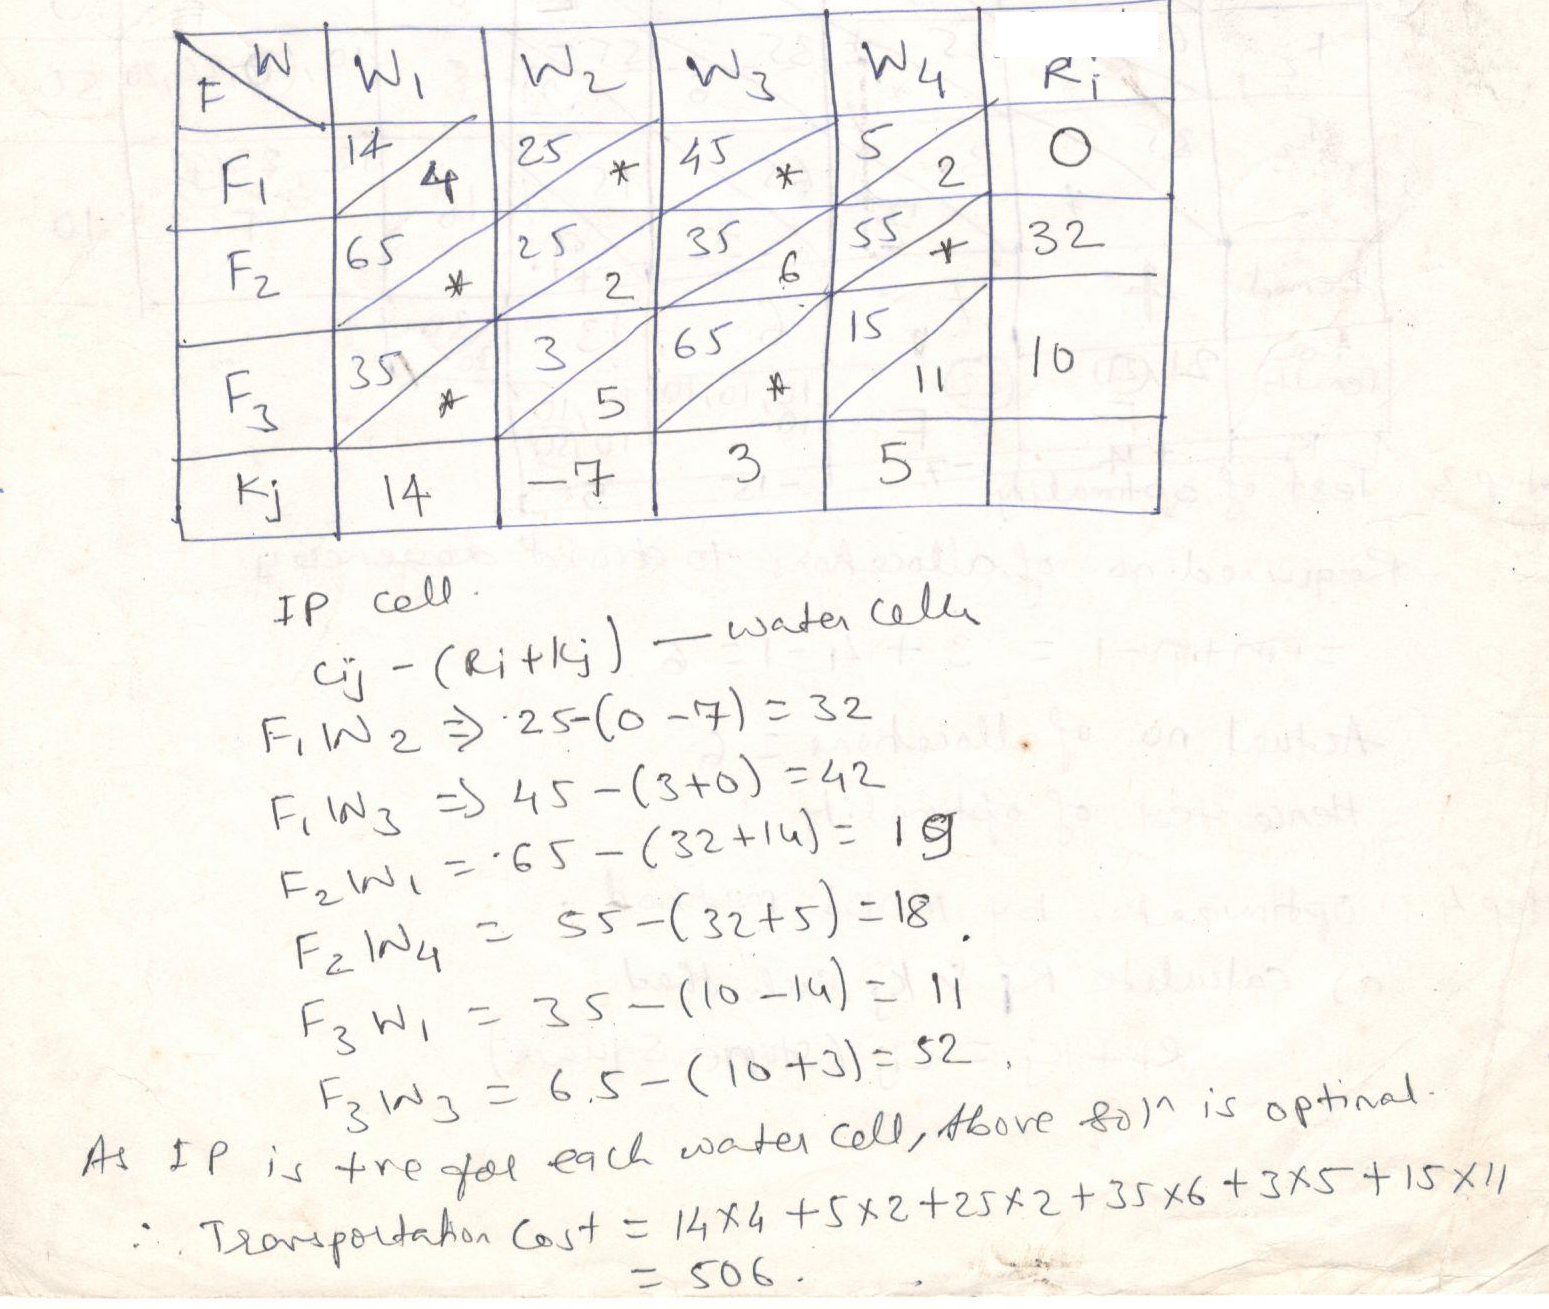 W F W1 W2 W3 W4 Ri
F1 14 4 25 * 45 * 5 2 0
F2 65 * 25 2 35 6 55 * 32
F3 35 * 3 5 65 * 15 11 10
Kj 14 -7 3 5
IP cell.
Cij - (Ri + Kj) — water cells
F1 W2 => 25-(0-7) = 32
F1 W3 => 45-(3+0) = 42
F2 W1 = 65-(32+14) = 19
F2 W4 = 55-(32+5) = 18.
F3 W1 = 35-(10-14) = 11
F3 W3 = 6.5-(10+3) = 52.
As IP is +ve for each water cell, Above sol^n is optimal.
∴ Transportation Cost = 14x4 +5x2+25x2+35x6+3x5+15x11
= 506.